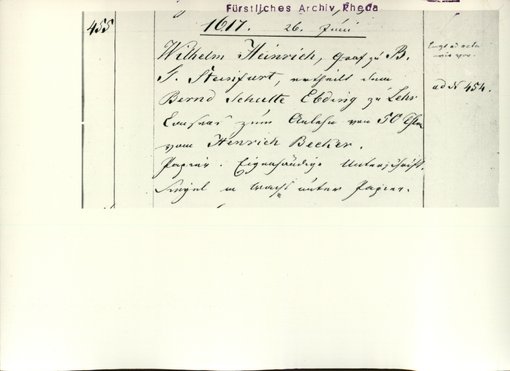 Fürstliches Archiv Rheda
455
1617. 26. Juni
Wilhelm Heinrich, Graf zu B.
T. Steinfurt, ertheilt dem
Bernd Schulte Ebbing zu Lehr
Consens zum Anlehn von 50
vom Henrich Becker.
Papier. Eigenhändige Unterschrift.
Siegel in Wachs unter Papier.
ad N 454.